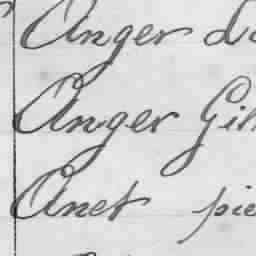 Anger
Anger
Anet pie